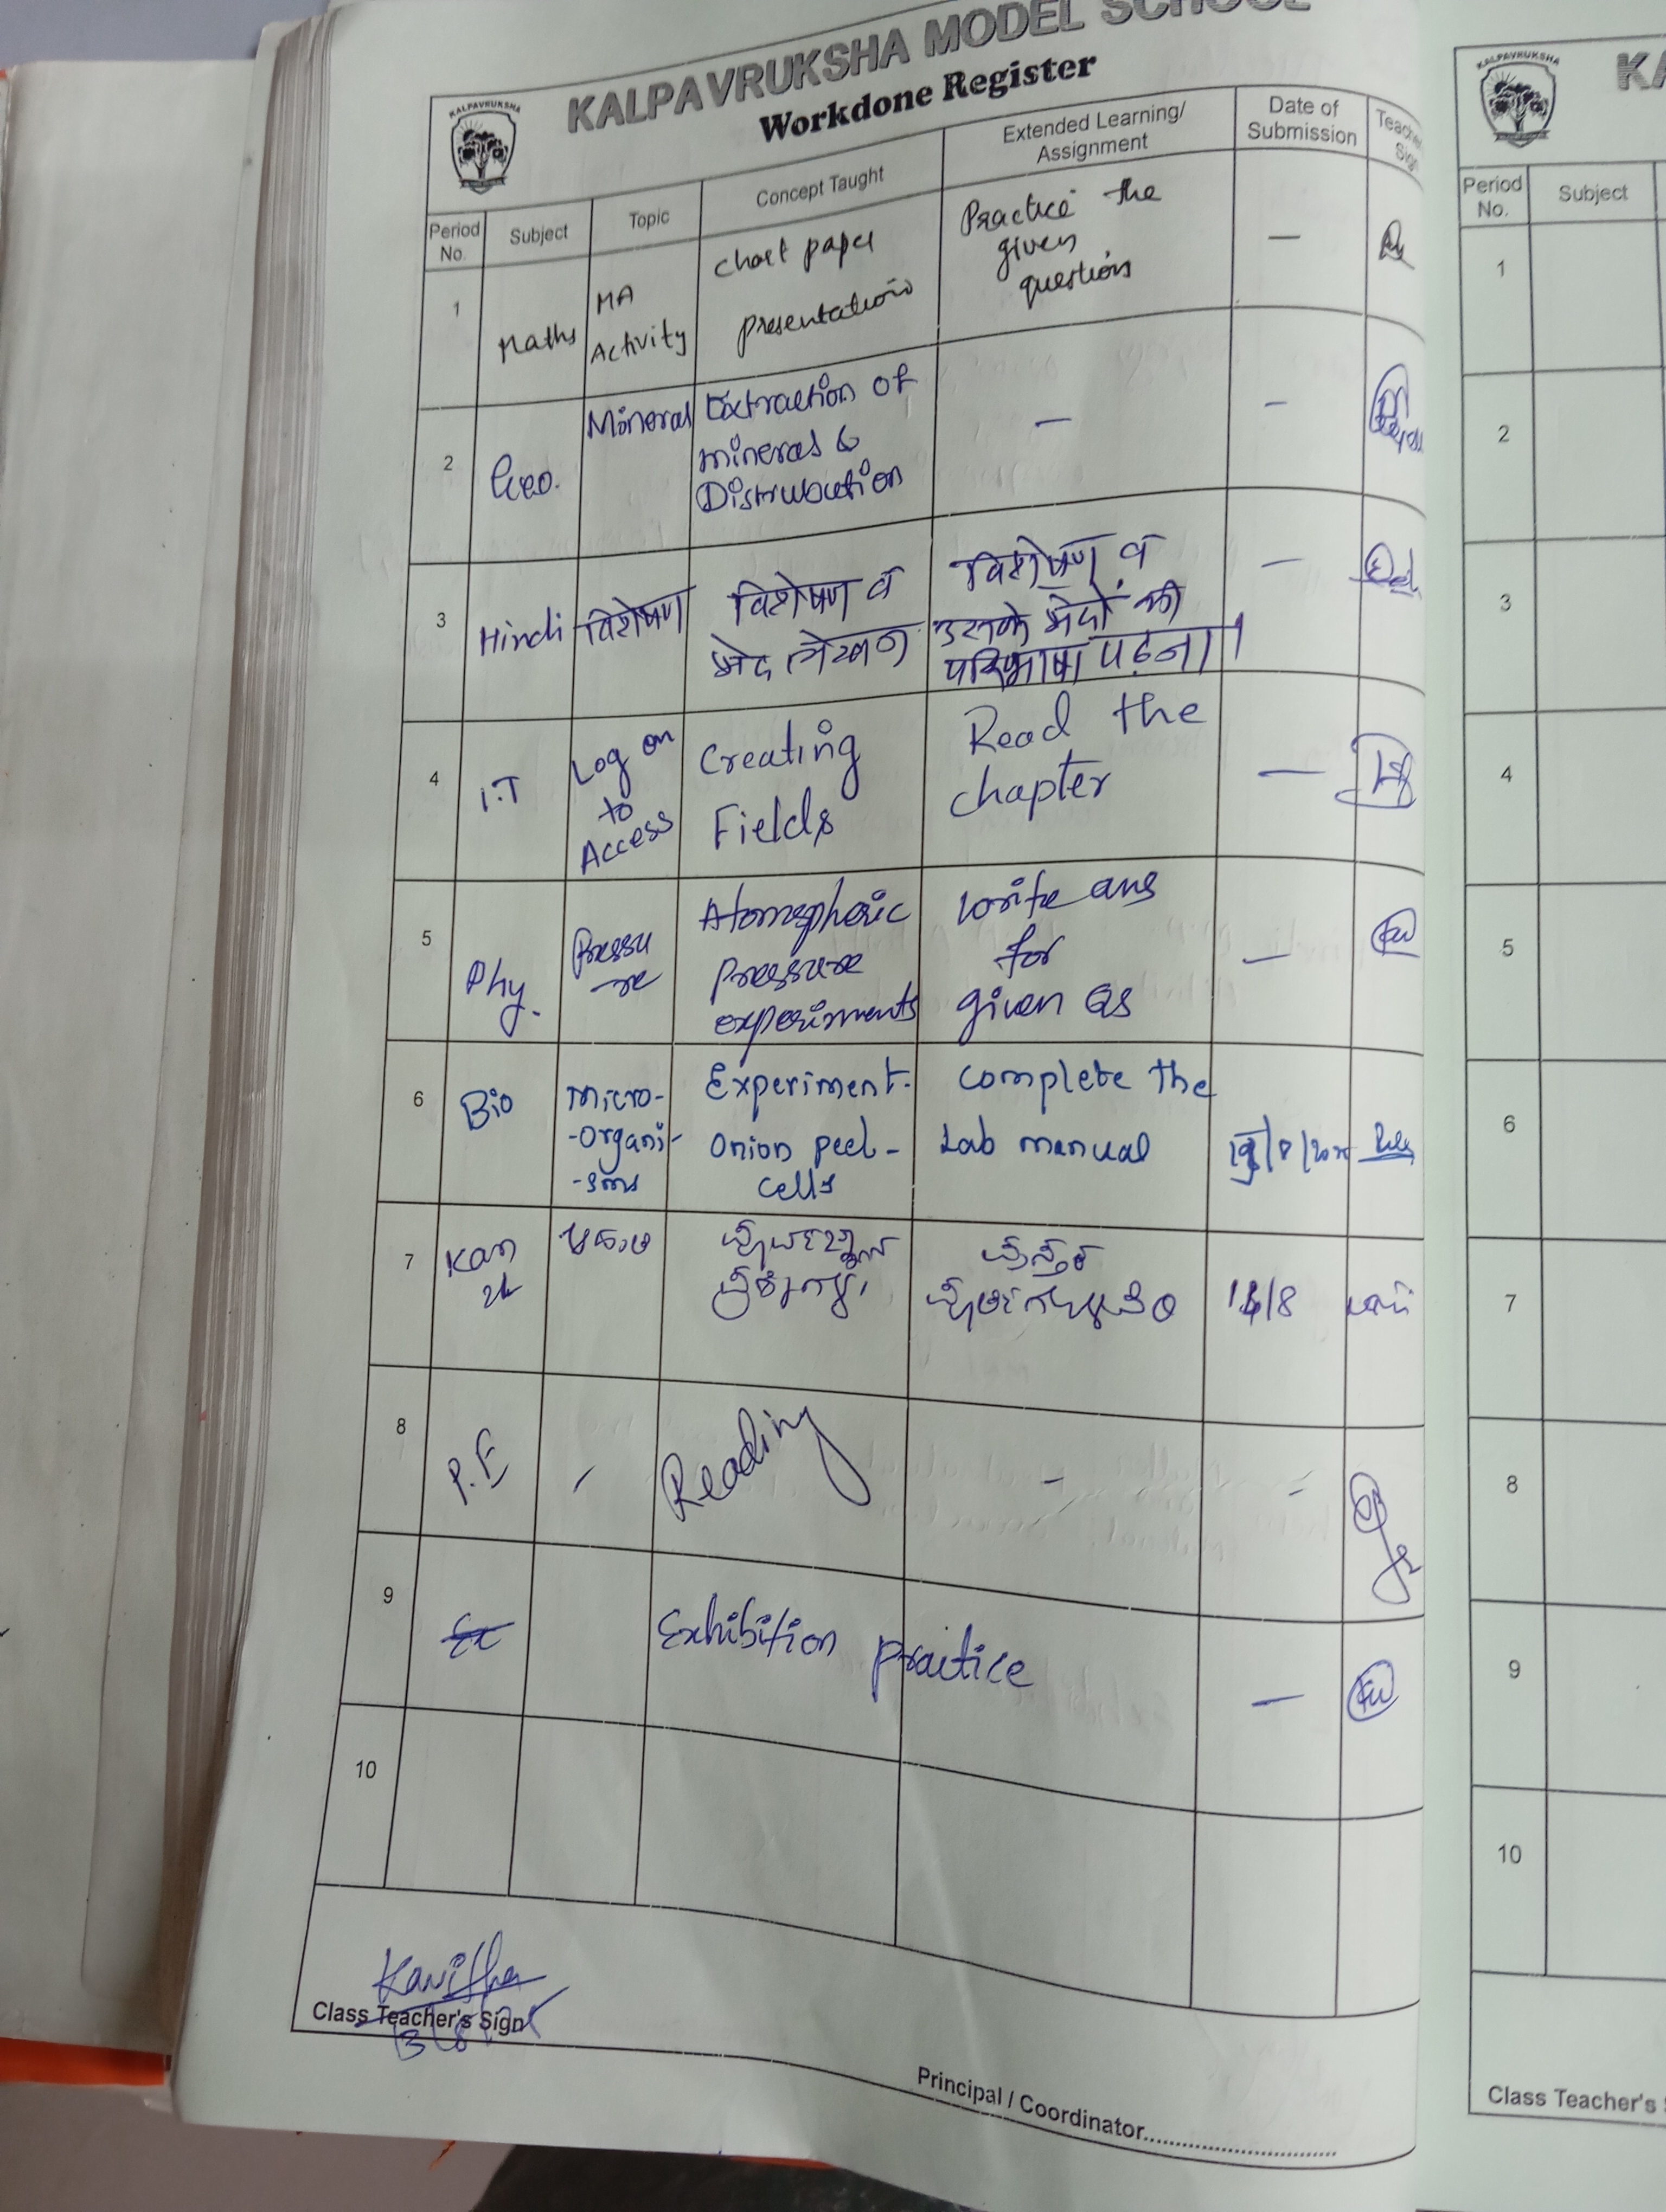 KALPAVRUKSHA
KALPAVRUKSHA MODEL SCHOOL
Workdone Register
Period No.
Subject
Topic
Concept Taught
Extended Learning/
Assignment
Date of
Submission
1
Maths
MA
Activity
Chart paper
presentation
Practice the
given
questions
—
2
Geo.
Mineral
Extraction of
minerals &
Distrubution
—
–
3
Hindi
विशेषण
विशेषण व
भेद लेखन
विशेषण व
उसके भेदों की
परिभाषा पढ़ना।
—
4
I.T
Log on
to
Access
Creating
Fields
Read the
chapter
—
5
Phy.
Pressu
-re
Atomspheric
pressure
experiments
write ans
for
given Qs
—
6
Bio
Micro-
-organi-
-sms
Experiment-
Onion peel-
cells
Complete the
Lab manual
7
Kan
2L
14/8
8
P.E
-
Reading
-
-
9
Ex
Exhibition practice
—
10
Kavitha
Class Teacher's Sign
Principal / Coordinator..............................
KALPAVRUKSHA
KA
Period
No.
Subject
1
2
3
4
5
6
7
8
9
10
Class Teacher's